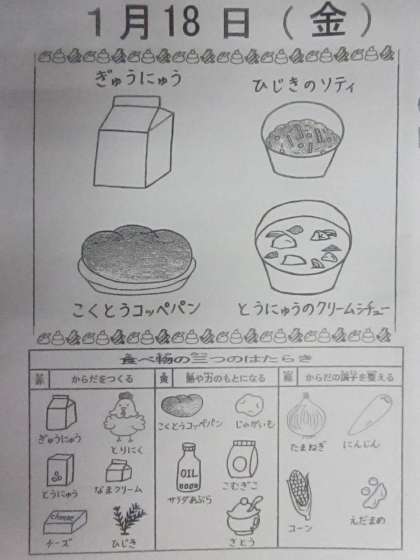 1月18日(金)
ぎゅうにゅう
ひじきのソティ
こくとうコッペパン
とうにゅうのクリームシチュー
食べ物の三つのはたらき
からだをつくる
熱や力のもとになる
からだの調子を整える
ぎゅうにゅう
とりにく
とうにゅう
なまクリーム
チーズ
ひじき
こくとうコッペパン
じゃがいも
OIL
サラダあぶら
こむぎこ
さとう
たまねぎ
にんじん
コーン
えだまめ